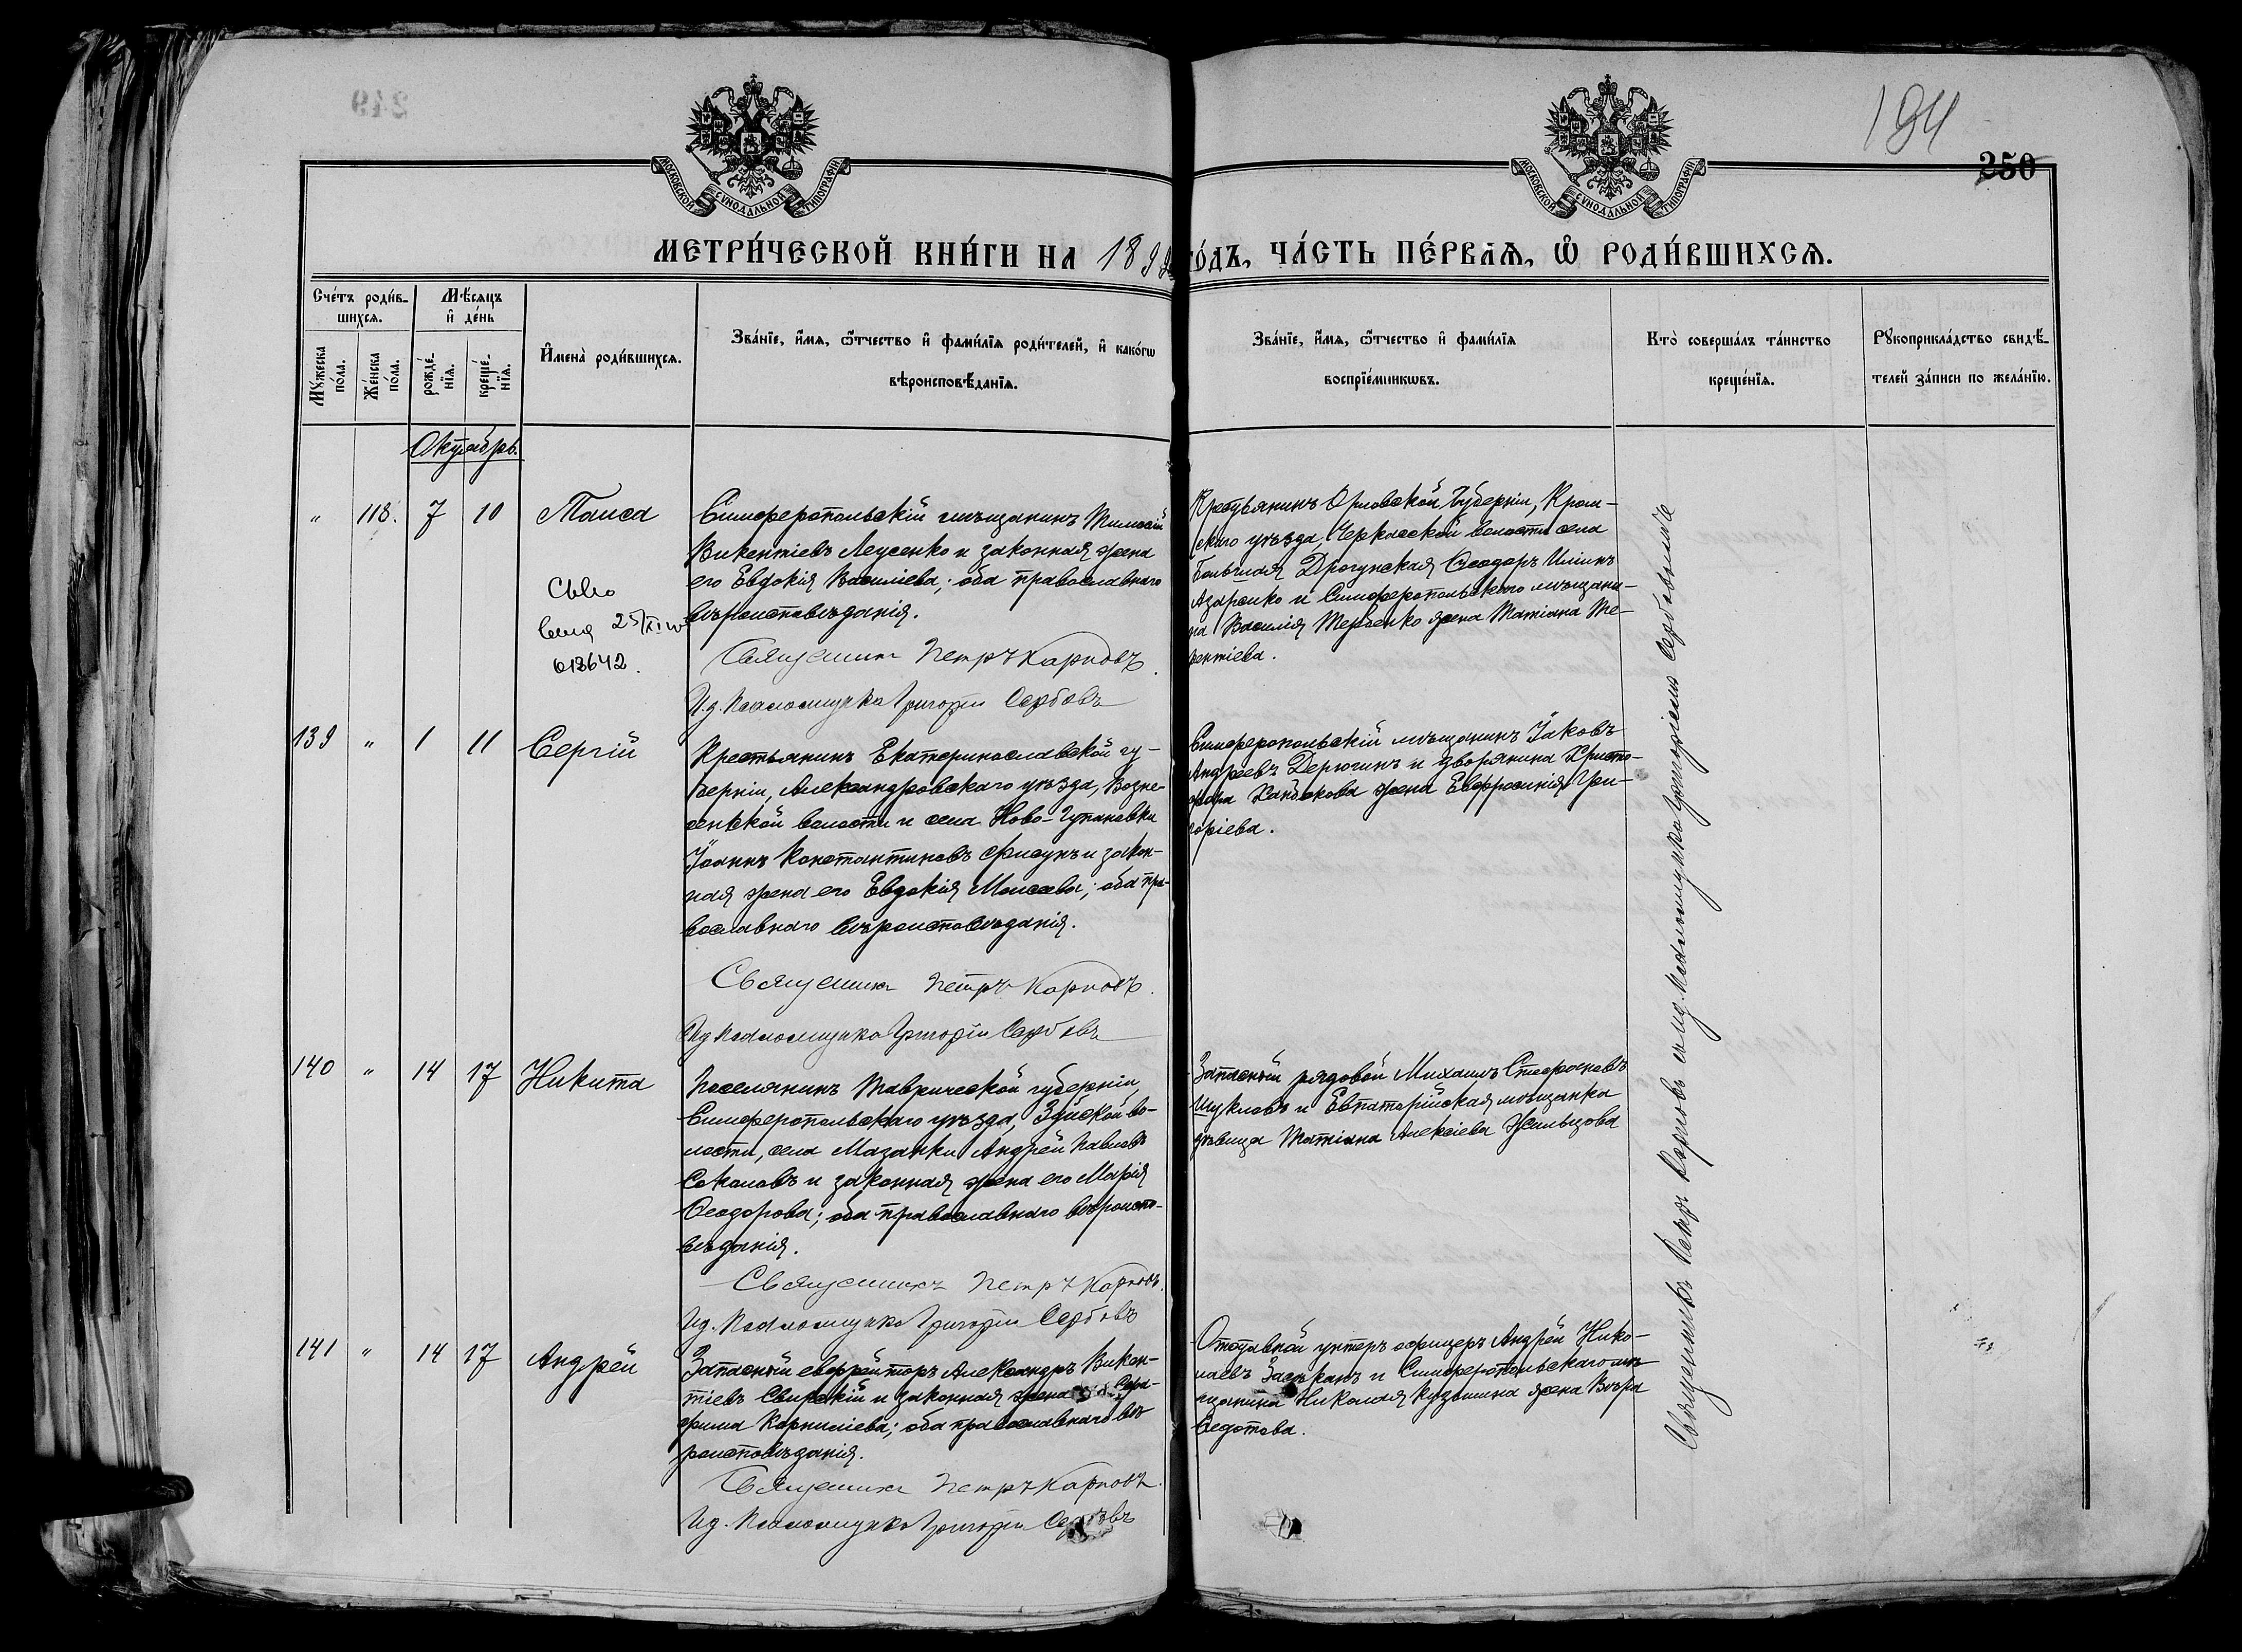 249
194
250
МОСКОВСКОЙ СѴНОДАЛЬНОЙ ТИПОГРАФІИ
МОСКОВСКОЙ СѴНОДАЛЬНОЙ ТИПОГРАФІИ
МЕТРИ́ЧЕСКОЙ КНИ́ГИ НА 1899 ГО́ДЪ, ЧА́СТЬ ПЕ́РВАѦ, Ѽ РОДИ́ВШИХСѦ.
Сче́тъ роди́в-
шихсѧ.
Мꙋ́жеска
по́ла.
Же́нска
по́ла.
Мѣ́сѧцъ
и҆ де́нь
рожде́-
нїѧ.
креще́-
нїѧ.
И҆мена̀ роди́вшихсѧ.
Зва́нїе, и҆́мѧ, ѻ҆́тчество и҆ фами́лїѧ роди́телей, и҆ како́гѡ
вѣроисповѣ́данїѧ.
Зва́нїе, и҆́мѧ, ѻ҆́тчество и҆ фами́лїѧ
воспрїе́мникѡвъ.
Кто̀ соверша́лъ та́инство
креще́нїѧ.
Рꙋкоприкла́дство свидѣ́-
телей за́писи по жела́нїю.
Октябрь.
" 118. 7 10 Таиса
Симферопольскій мѣщанинъ Тимоѳій
Викентіевъ Леусенко и законная жена
его Евдокія Василіева; оба православнаго
вѣроисповѣданія.
Священникъ Петръ Карповъ.
И.д. Псаломщика Григорій Сербовъ
Св-во
выд 25/XI
018642.
Крестьянинъ Орловской губерніи, Кром-
скаго уѣзда, Черкасской волости села
Большая Драгунская Ѳеодоръ Ильинъ
Азаренко и Симферопольскаго мѣщани-
на Василія жена Татіана Те-
рентіева.
139 " 1 11 Сергій
Крестьянинъ Екатеринославской гу-
берніи, Александровскаго уѣзда, Возне-
сенской волости и села Ново-Гупаловки
Іоаннъ Константиновъ Фисунъ и закон-
ная жена его Евдокія Моисеева; оба пра-
вославнаго вѣроисповѣданія.
Священникъ Петръ Карповъ.
И.д. Псаломщика Григорій Сербовъ
Симферопольскій мѣщанинъ Іаковъ
Андреевъ Дерюгинъ и дворянина Христо-
фора жена Евфросинія Гри-
горіева.
140 " 14 17 Никита
Поселянинъ Таврической губерніи,
Симферопольскаго уѣзда, Зуйской во-
лости, села Мазанки Андрей Павловъ
Соколовъ и законная жена его Марія
Ѳеодорова; оба православнаго вѣроиспо-
вѣданія.
Священникъ Петръ Карповъ.
И.д. Псаломщика Григорій Сербовъ
Запасный рядовой Михаилъ Стефановъ
Шукловъ и Евпаторійская мѣщанка
дѣвица Татіана Алексіева Жильцова
141 " 14 17 Андрей
Запасный ефрейторъ Александръ Викен-
тіевъ Свирскій и законная жена его Сера-
фима Корниліева; оба православнаго вѣ
роисповѣданія.
Священникъ Петръ Карповъ.
И.д. Псаломщика Григорій Сербовъ
Отставной унтеръ офицеръ Андрей Нико-
лаевъ и Симферопольскаго мѣ
щанина Николая Кузьмина жена Вѣра
Ѳедотова.
Священникъ Петръ Карповъ съ и.д. псаломщика Григоріемъ Сербовымъ